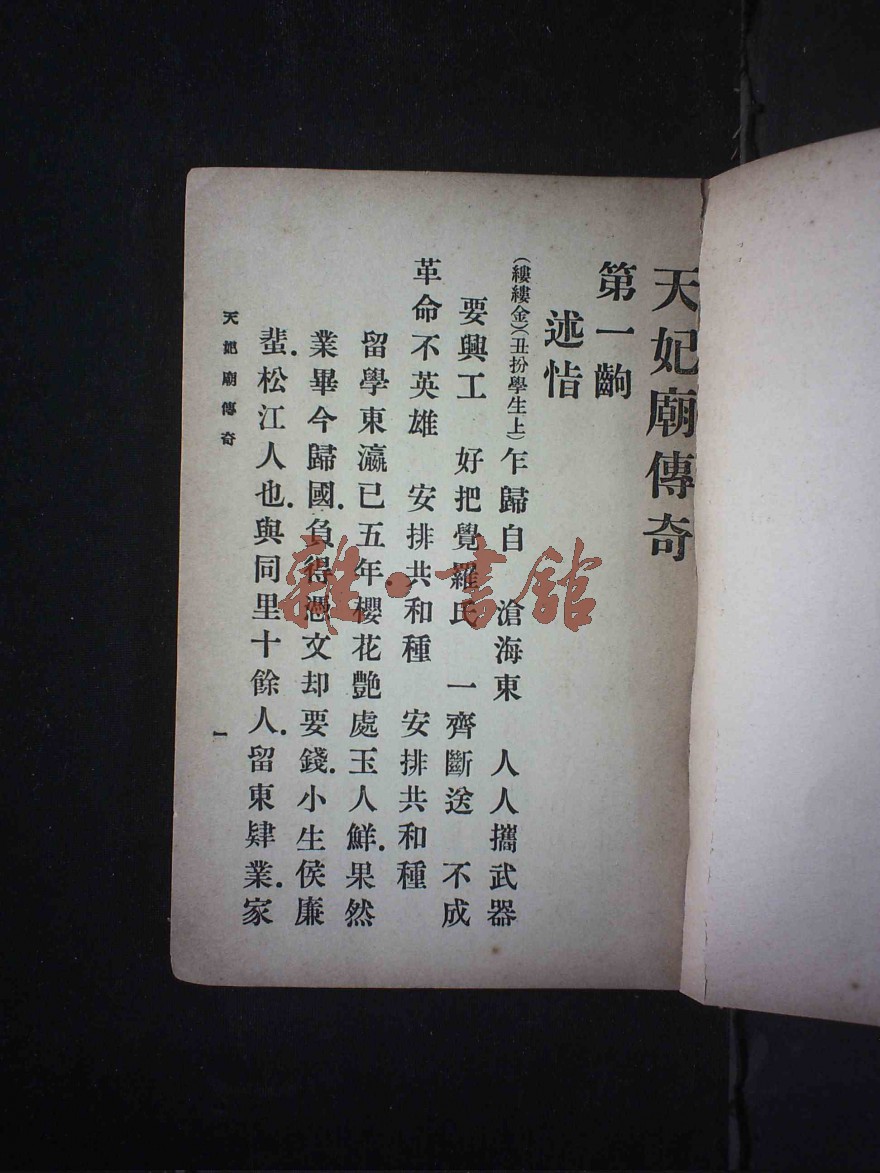 天妃廟傳奇
第一齣
述恉
(縷縷金)(丑扮學生上)乍歸自　滄海東　人人攜武器
要興工　好把覺羅氏　一齊斷送　不成
革命不英雄　安排共和種　安排共和種
留學東瀛已五年.櫻花艷處玉人鮮.果然
業畢今歸國.負得憑文却要錢.小生侯廉
蜚.松江人也.與同里十餘人.留東肄業.家
天妃廟傳奇
一
雜·書館